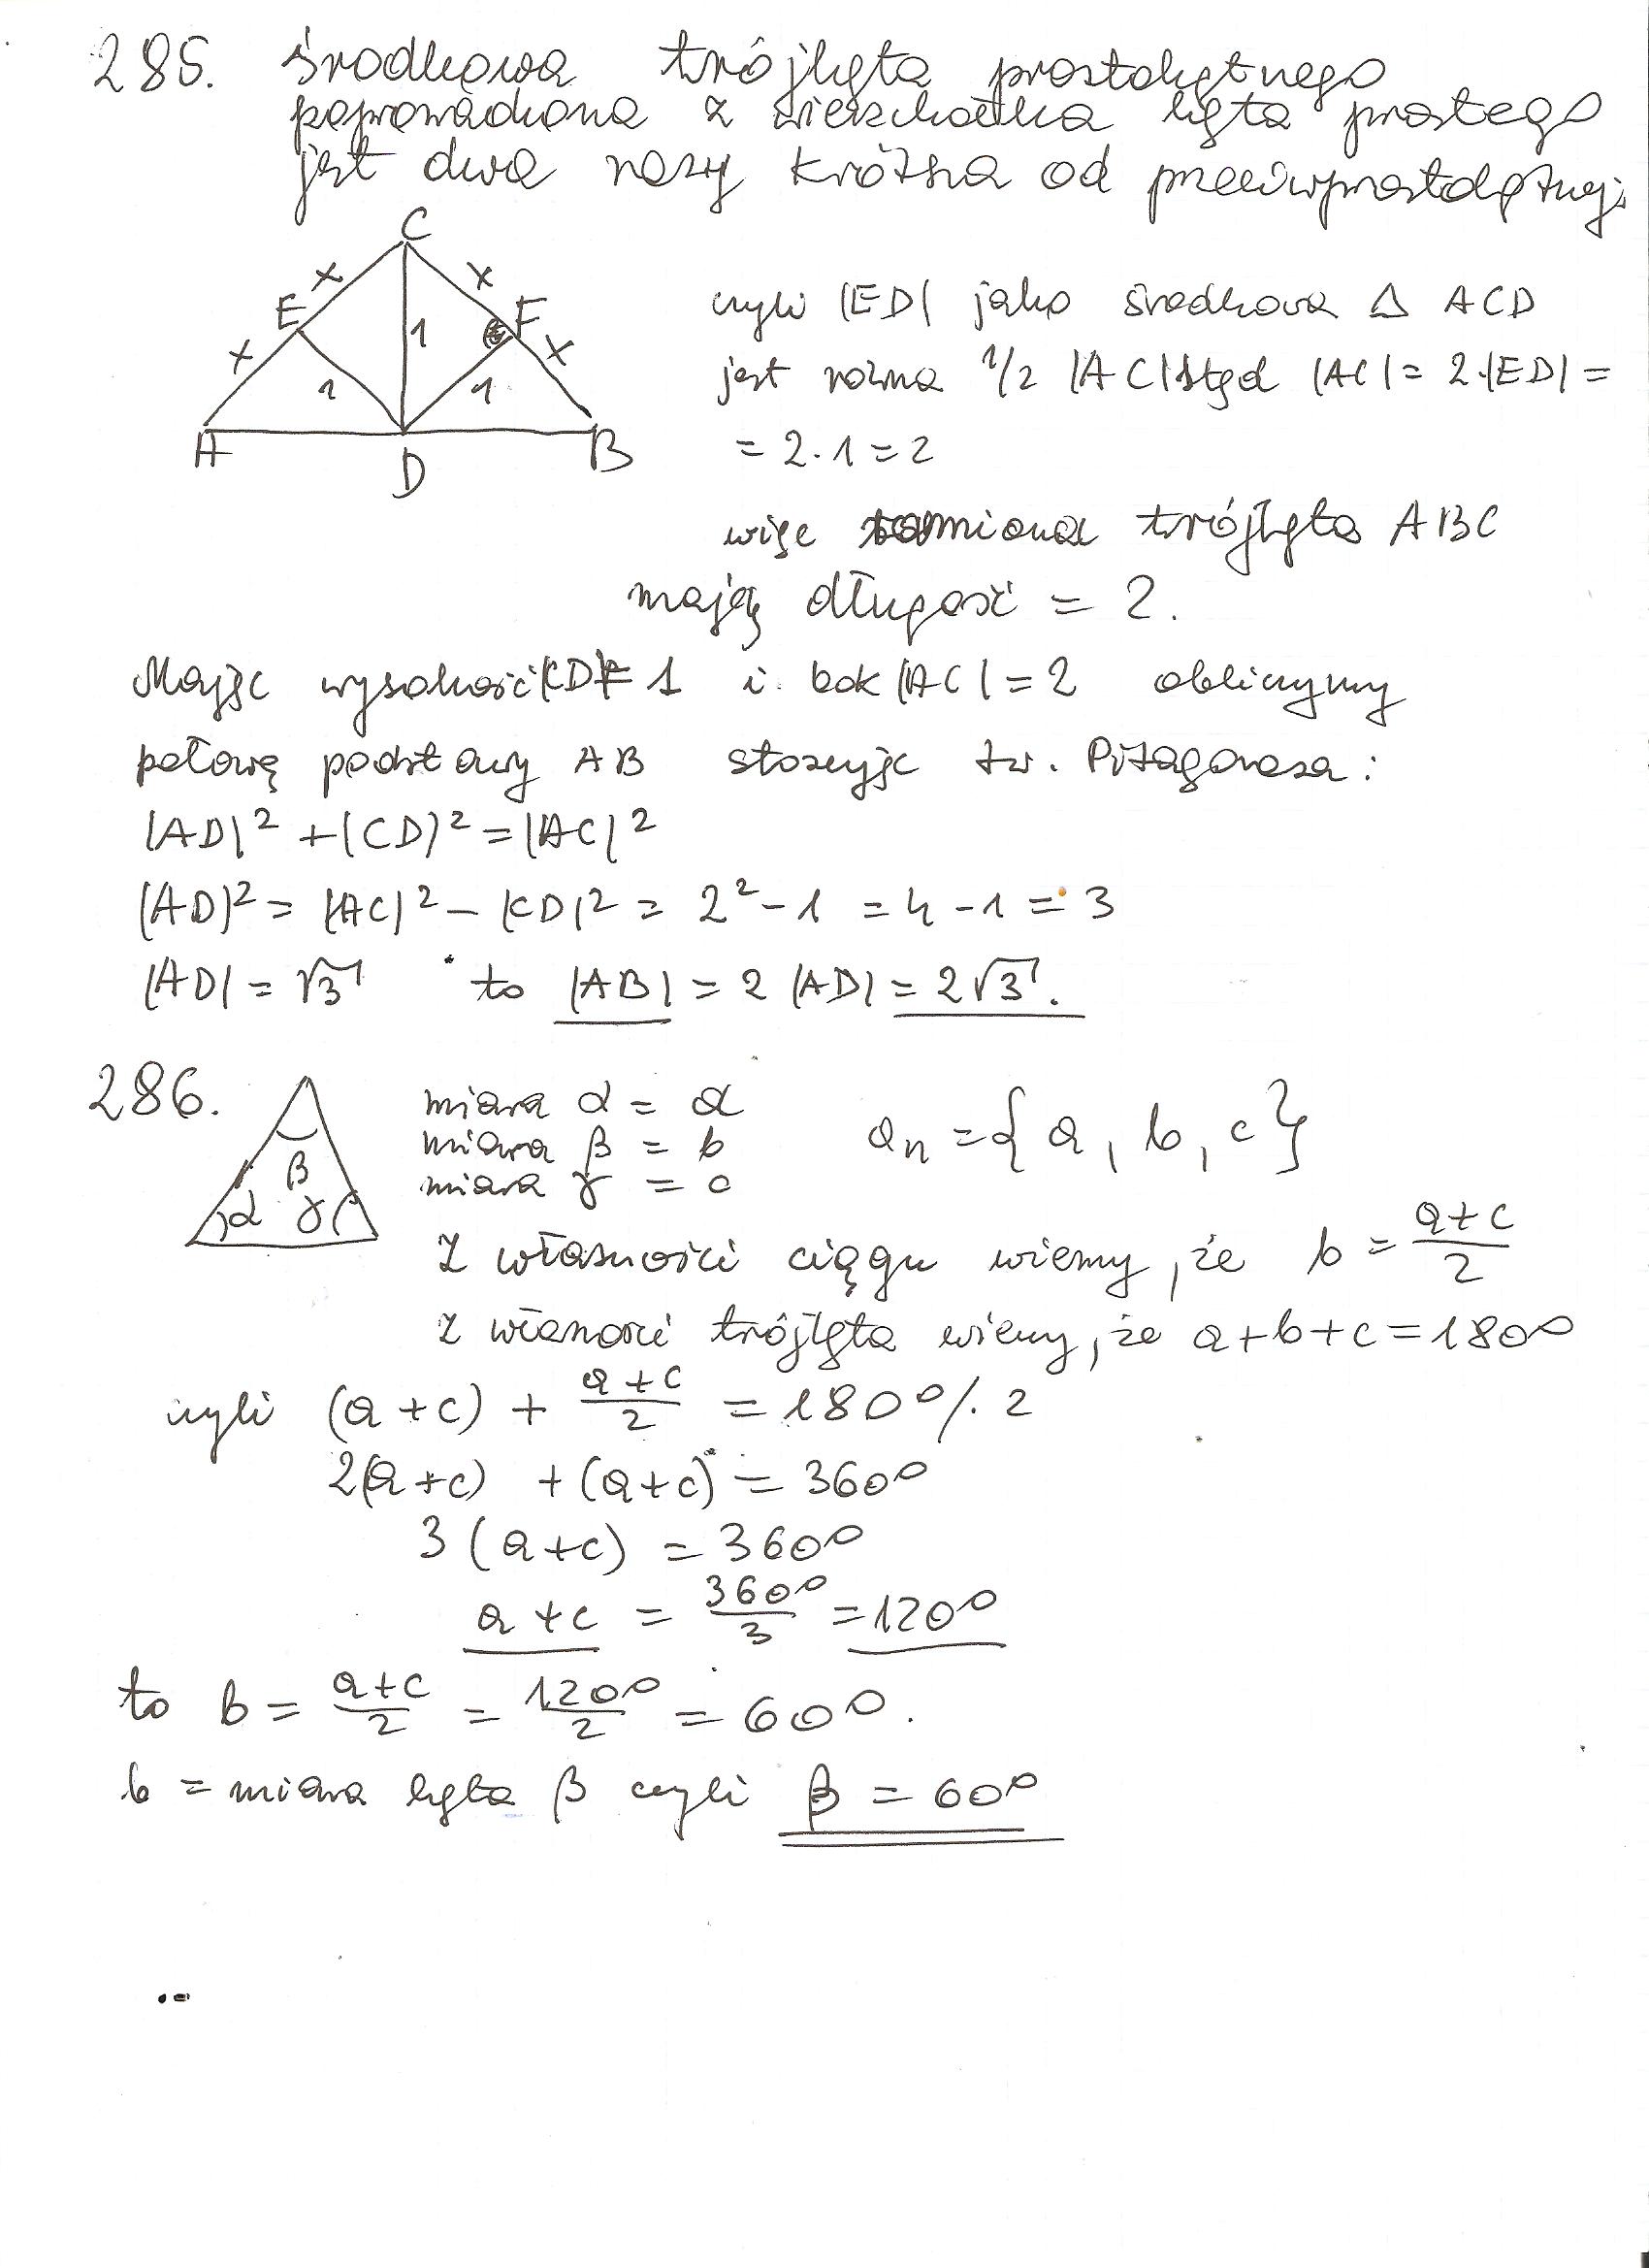 285. Środkowa trójkąta prostokątnego
poprowadzona z wierzchołka kąta prostego
jest dwa razy krótsza od przeciwprostokątnej.
C
x x
E F
1
x x
1 1
A B
D
czyli |ED| jako środkowa △ ACD
jest równa 1/2 |AC| stąd |AC| = 2·|ED| =
= 2·1 = 2
więc ramiona trójkąta ABC
mają długość = 2.
Mając wysokość |CD| = 1 i bok |AC| = 2 obliczymy
połowę podstawy AB stosując tw. Pitagorasa:
|AD|² + |CD|² = |AC|²
|AD|² = |AC|² - |CD|² = 2² - 1 = 4 - 1 = 3
|AD| = √3 to |AB| = 2 |AD| = 2√3.
286.
β
α γ
miara α = a
miara β = b
miara γ = c
aₙ = {a, b, c}
Z własności ciągu wiemy, że b = (a+c)/2
z własności trójkąta wiemy, że a+b+c = 180°
czyli (a+c) + (a+c)/2 = 180° /·2
2(a+c) + (a+c) = 360°
3(a+c) = 360°
a+c = 360°/3 = 120°
to b = (a+c)/2 = 120°/2 = 60°.
b = miara kąta β czyli β = 60°